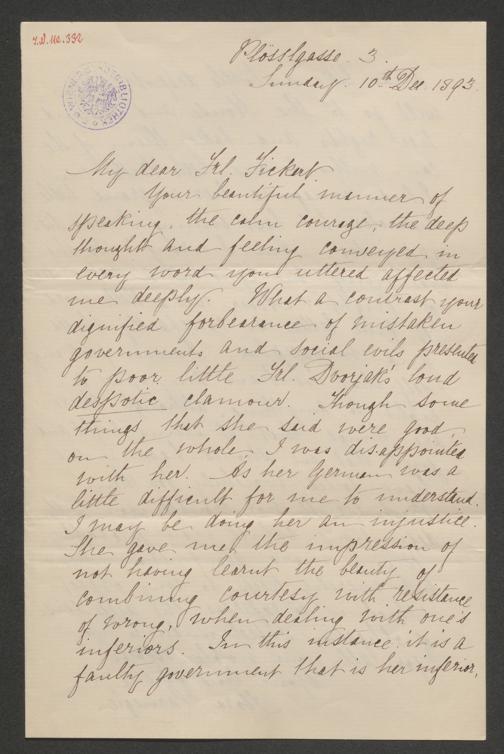 I.N. 116.332
Plösslgasse 3.
Sunday. 10th Dec. 1893.
My dear Frl. Fickert
Your beautiful manner of
speaking, the calm courage, the deep
thought and feeling conveyed in
every word you uttered affected
me deeply. What a contrast your
dignified forbearance of mistaken
governments and social evils presented
to poor little Frl. Dvorjak's loud
despotic clamour. Though some
things that she said were good
on the whole, I was disappointed
with her. As her German was a
little difficult for me to understand.
I may be doing her an injustice.
She gave me the impression of
not having learnt the beauty of
combining courtesy with resistance
of wrong, when dealing with one's
inferiors. In this instance it is a
faulty government that is her inferior,